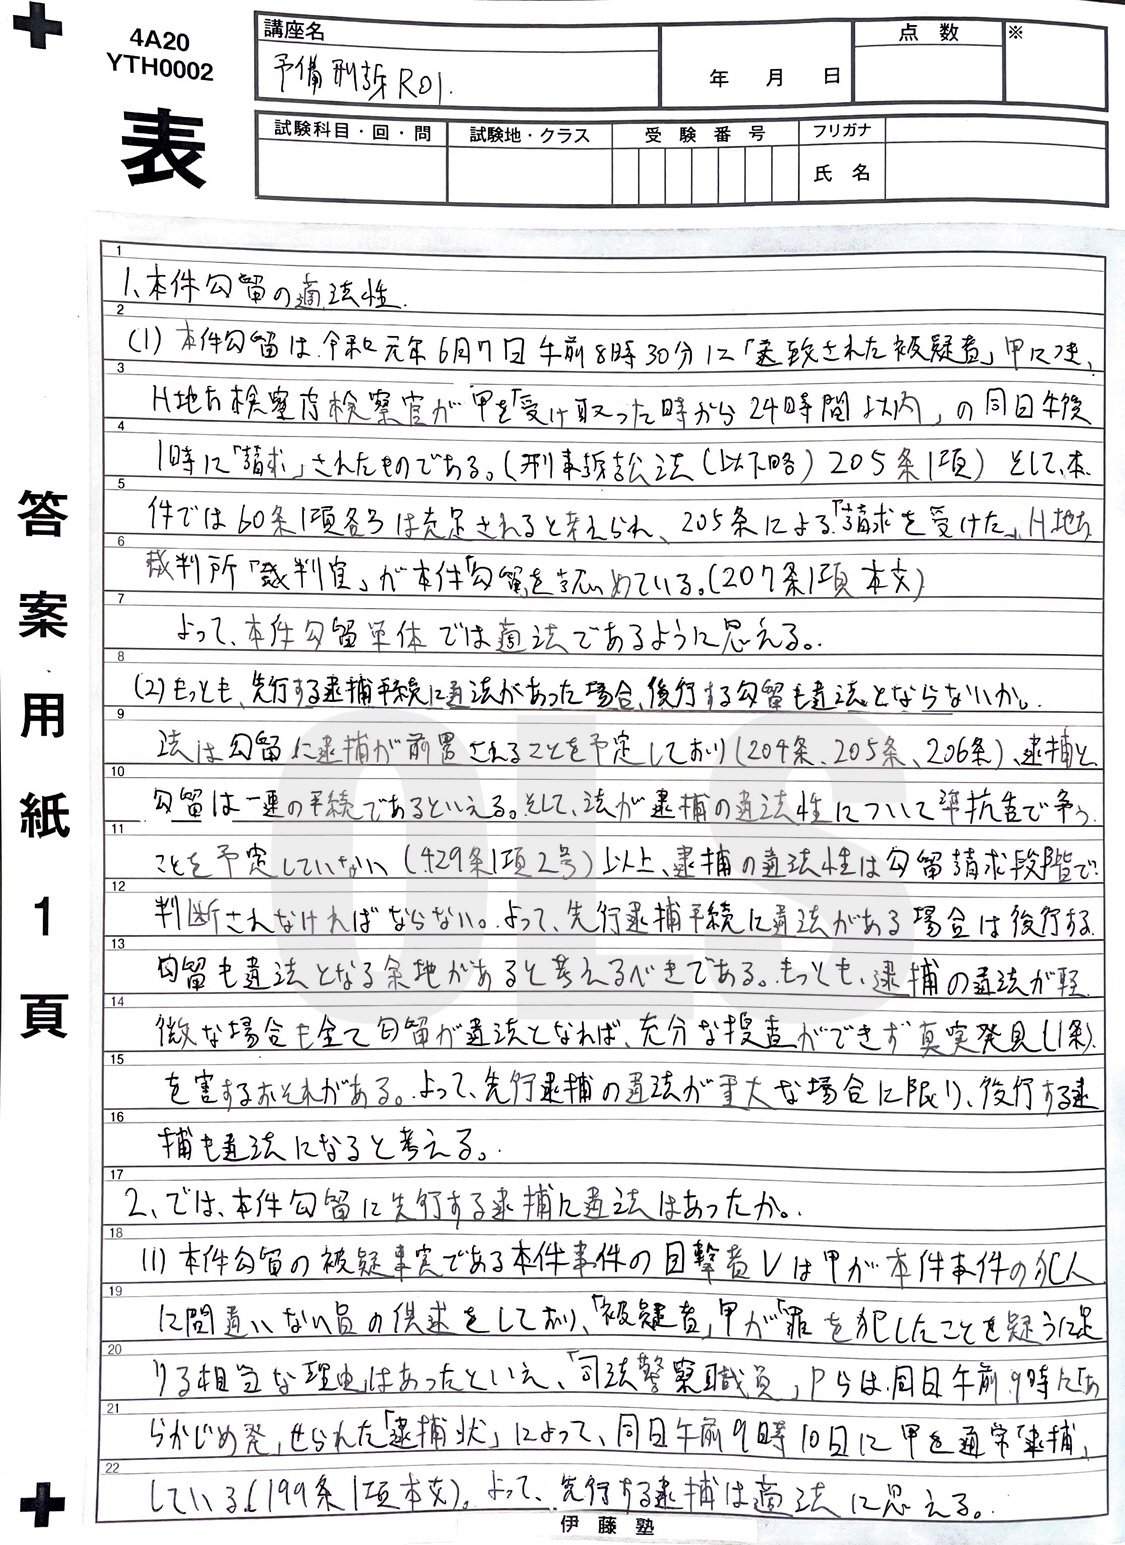 4A20
YTH0002
表
講座名
予備刑訴R01.
年 月 日
点 数
※
試験科目・回・問
試験地・クラス
受 験 番 号
フリガナ
氏 名
答案用紙1頁
1
1、本件勾留の適法性.
2
(1) 本件勾留は、令和元年6月7日午前8時30分に「送致された被疑者」甲につき、
3
H地方検察庁検察官が甲を「受け取った時から24時間以内」の同日午後
4
1時に「請求」されたものである。(刑事訴訟法(以下略)205条1項) そして、本
5
件では60条1項各号は充足されると考えられ、205条による「請求を受けた」H地方
6
裁判所「裁判官」が本件「勾留」を認めている。(207条1項本文)
7
よって、本件勾留単体では適法であるように思える。
8
(2)もっとも、先行する逮捕手続に違法があった場合、後行する勾留も違法とならないか。
9
法は勾留に逮捕が前置されることを予定しており(204条、205条、206条)、逮捕と
10
勾留は一連の手続であるといえる。そして、法が逮捕の違法性について準抗告で争う
11
ことを予定していない(429条1項2号)以上、逮捕の違法性は勾留請求段階で
12
判断されなければならない。よって、先行逮捕手続に違法がある場合は後行する
13
勾留も違法となる余地があると考えるべきである。もっとも、逮捕の違法が軽
14
微な場合も全て勾留が違法となれば、充分な捜査ができず真実発見(1条)
15
を害するおそれがある。よって、先行逮捕の違法が重大な場合に限り、後行する逮
16
捕も違法になると考える。
17
2、では、本件勾留に先行する逮捕に違法はあったか。
18
(1) 本件勾留の被疑事実である本件事件の目撃者Vは甲が本件事件の犯人
19
に間違いない旨の供述をしており、「被疑者」甲が「罪を犯したことを疑うに足
20
りる相当な理由」はあったといえ、「司法警察職員」Pらは同日午前9時に「あ
21
らかじめ発」せられた「逮捕状」によって、同日午前9時10分に甲を通常「逮捕」
22
している。(199条1項本文)。よって、先行する逮捕は適法に思える。
伊 藤 塾
OLS